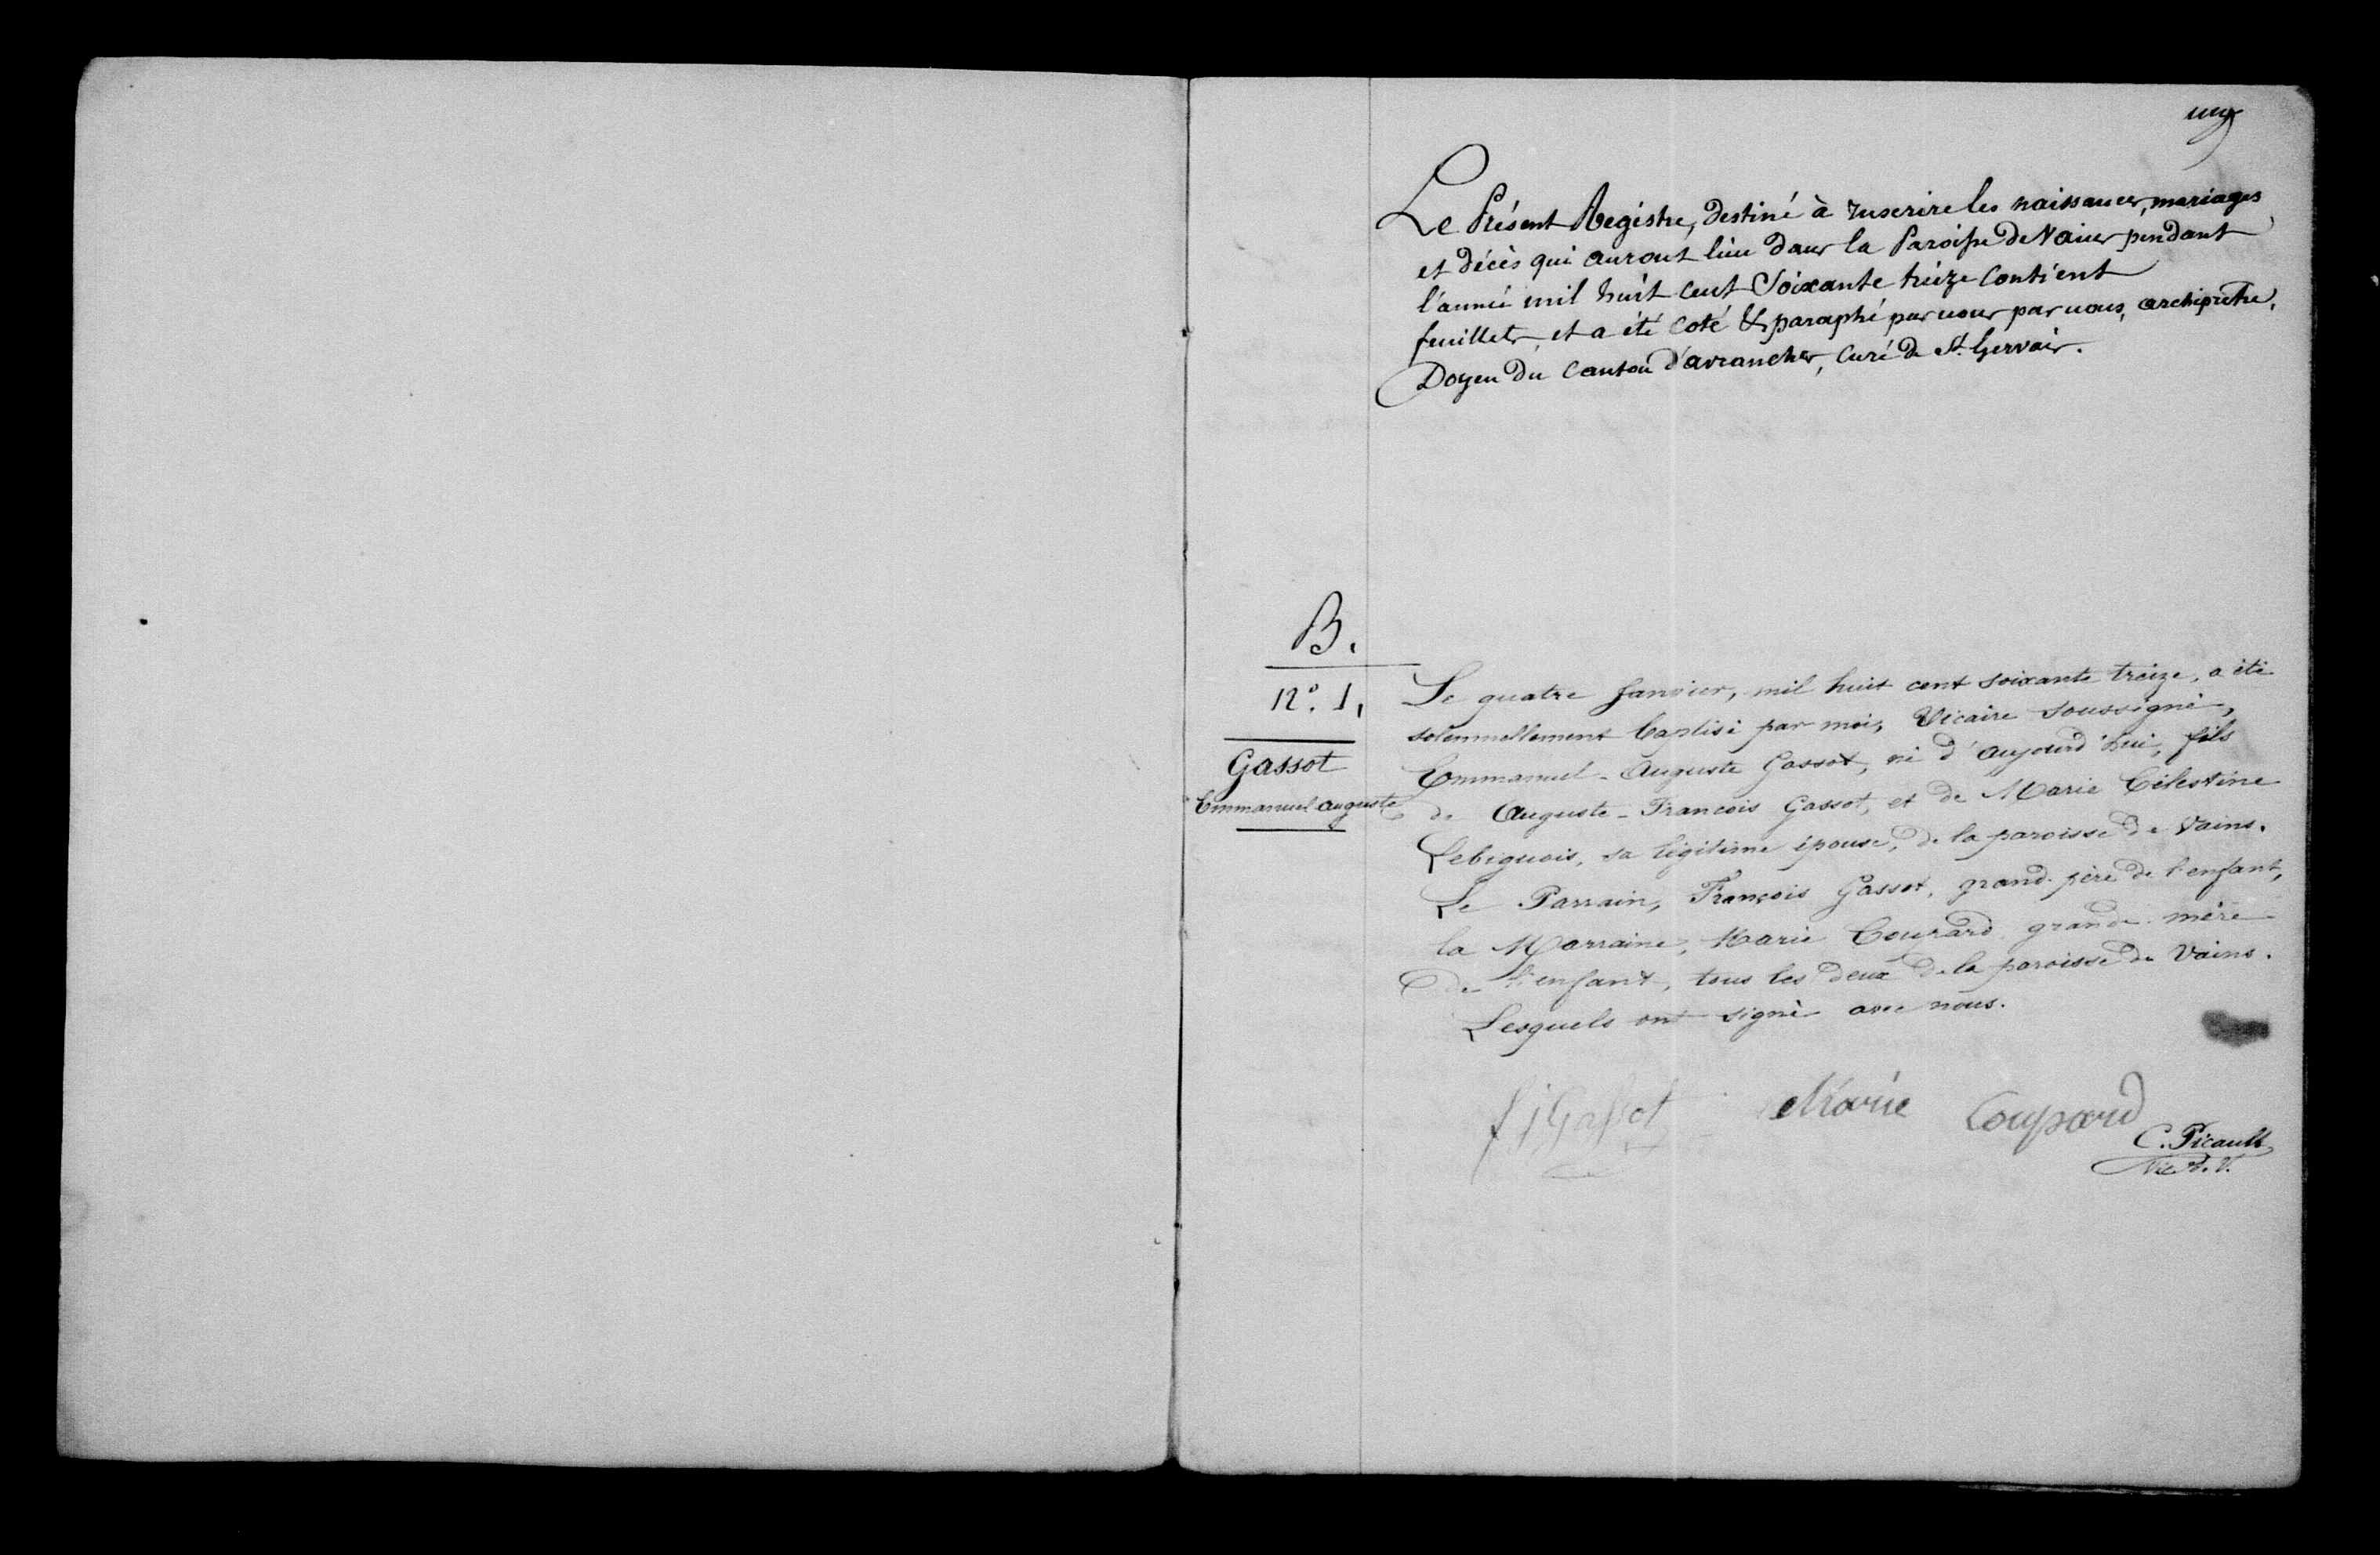 un
Le Présent Registre, destiné à Inscrire les naissances, mariages
et décès qui auront lieu dans la Paroisse de Vains pendant
l'année mil huit cent Soixante treize Contient
feuillets, et a été Coté & paraphé par nous par nous, archiprêtre,
Doyen du Canton d'avranches, Curé de St. Gervais.
B.
n°. 1,
Gassot
Emmanuel auguste
Le quatre Janvier, mil huit cent soixante treize, a été
solennellement baptisé par moi, Vicaire soussigné,
Emmanuel-Auguste Gassot, né d'aujourd'hui, fils
de Auguste-Francois Gassot, et de Marie Célestine
Lebiguois, sa légitime épouse, de la paroisse de Vains.
Le Parrain, François Gassot, grand-père de l'enfant,
la Marraine, Marie Coupard grande-mère
de l'enfant, tous les deux de la paroisse de Vains.
Lesquels ont signé avec nous.
f j Gassot Marie Coupard
C. Picault
Vic